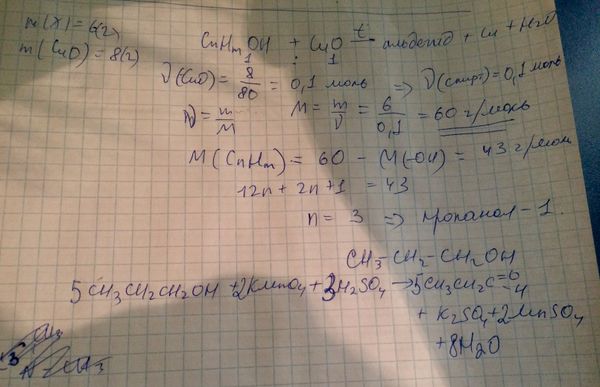 m(X)=6(г)
m(CuO)=8(г)
CnHmOH + CuO t→ альдегид + Cu + H2O
1 : 1
ν(CuO) = 8/80 = 0,1 моль => ν(спирт)=0,1 моль
ν = m/M M = m/ν = 6/0,1 = 60 г/моль
M(CnHm) = 60 - M(-OH) = 43 г/моль
12n + 2n + 1 = 43
n = 3 => пропанол-1.
CH3-CH2-CH2OH
5CH3CH2CH2OH + 2KMnO4 + 3H2SO4 → 5CH3CH2C=O-H
+ K2SO4 + 2MnSO4
+ 8H2O